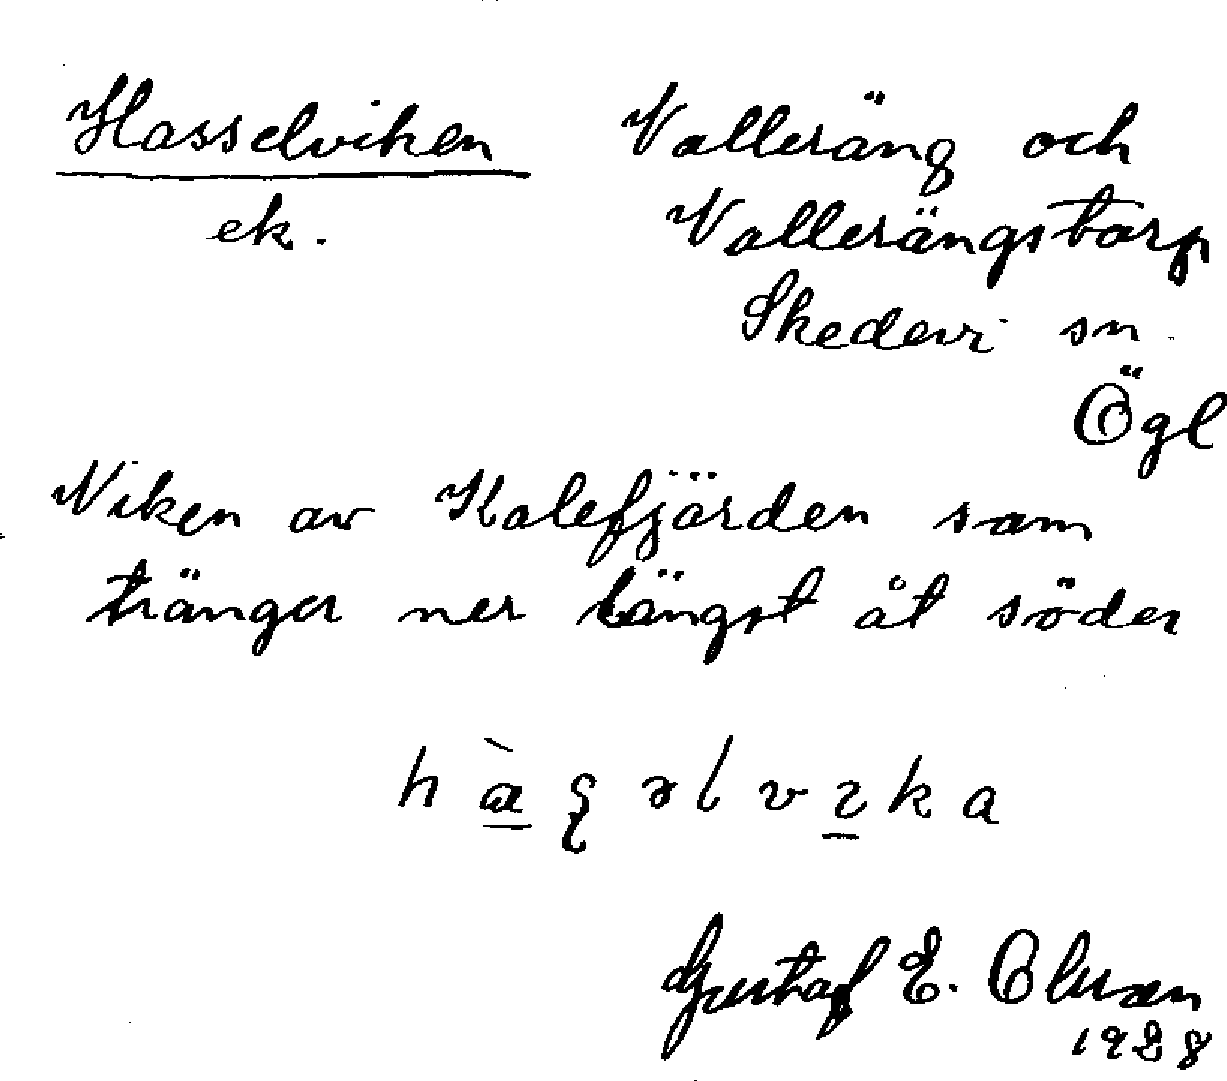 Hasselviken Valleräng och
ek. Vallerängstorp
Skedevi sn.
Ögl
Viken av Kolefjärden som
tränger ner längst åt söder
Gustaf E. Olsson
1928